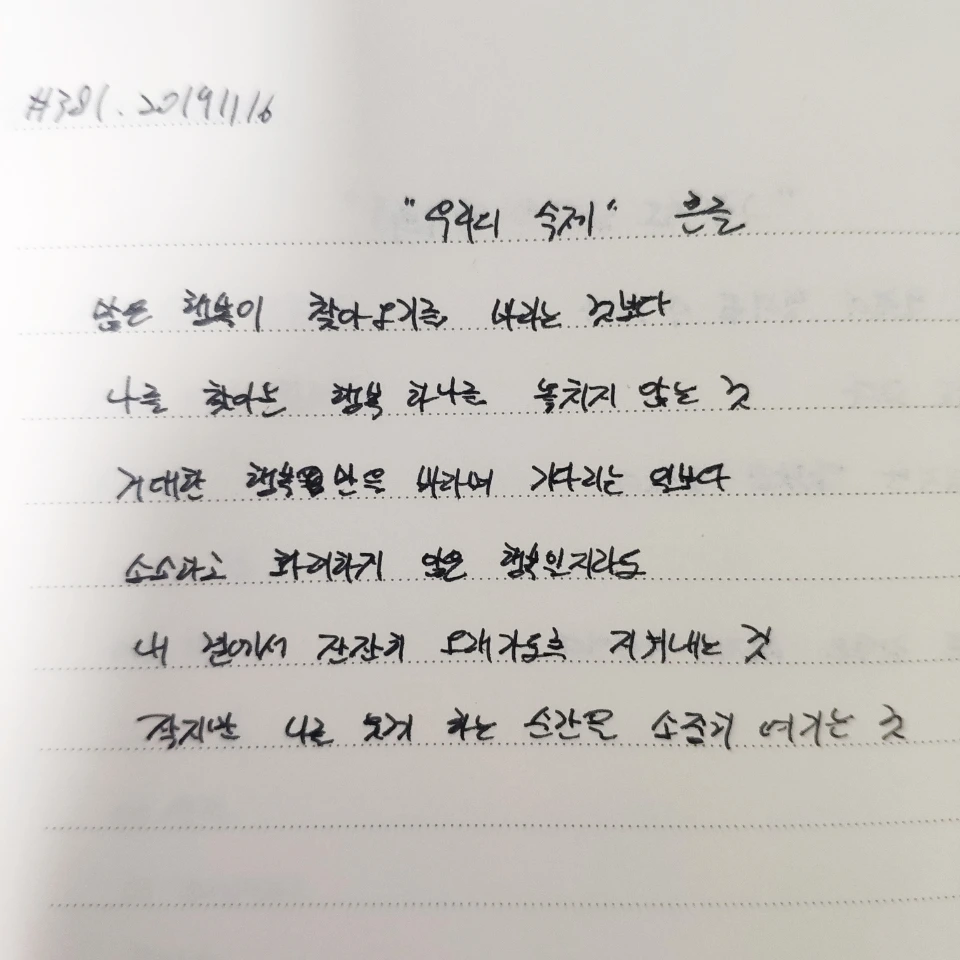 #381. 20191116
"우리의 숙제" 흔글
많은 행복이 찾아오기를 바라는 것보다
나를 찾아온 행복 하나를 놓치지 않는 것
거대한 행복만을 바라며 기다리는 일보다
소소하고 화려하지 않은 행복일지라도
내 곁에서 잔잔히 오래가도록 지켜내는 것
작지만 나를 웃게 하는 순간을 소중히 여기는 것